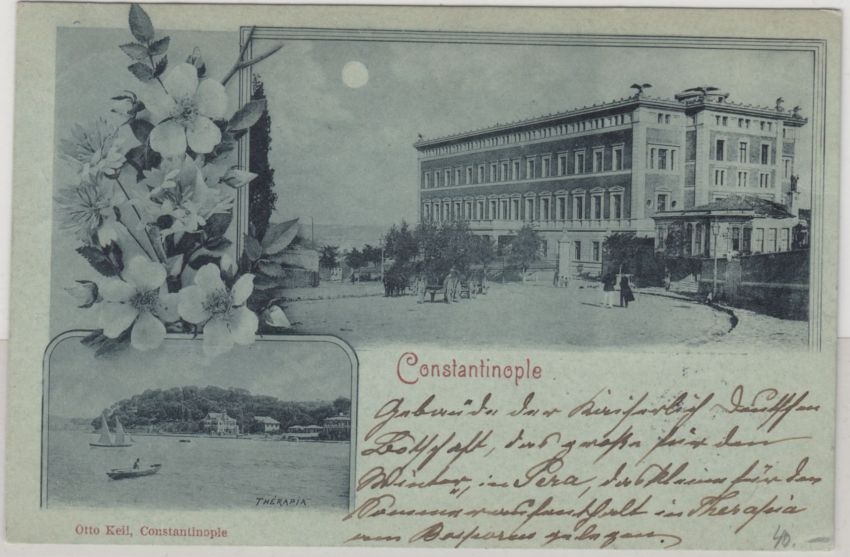 Constantinople
Gebäude der Kaiserlich Deutschen
Botschaft, das große für den
Winter, in Pera, das kleine für den
Sommeraufenthalt in Therapia
am Bosporus gelegen.
THÉRAPIA
Otto Keil, Constantinople
40.—